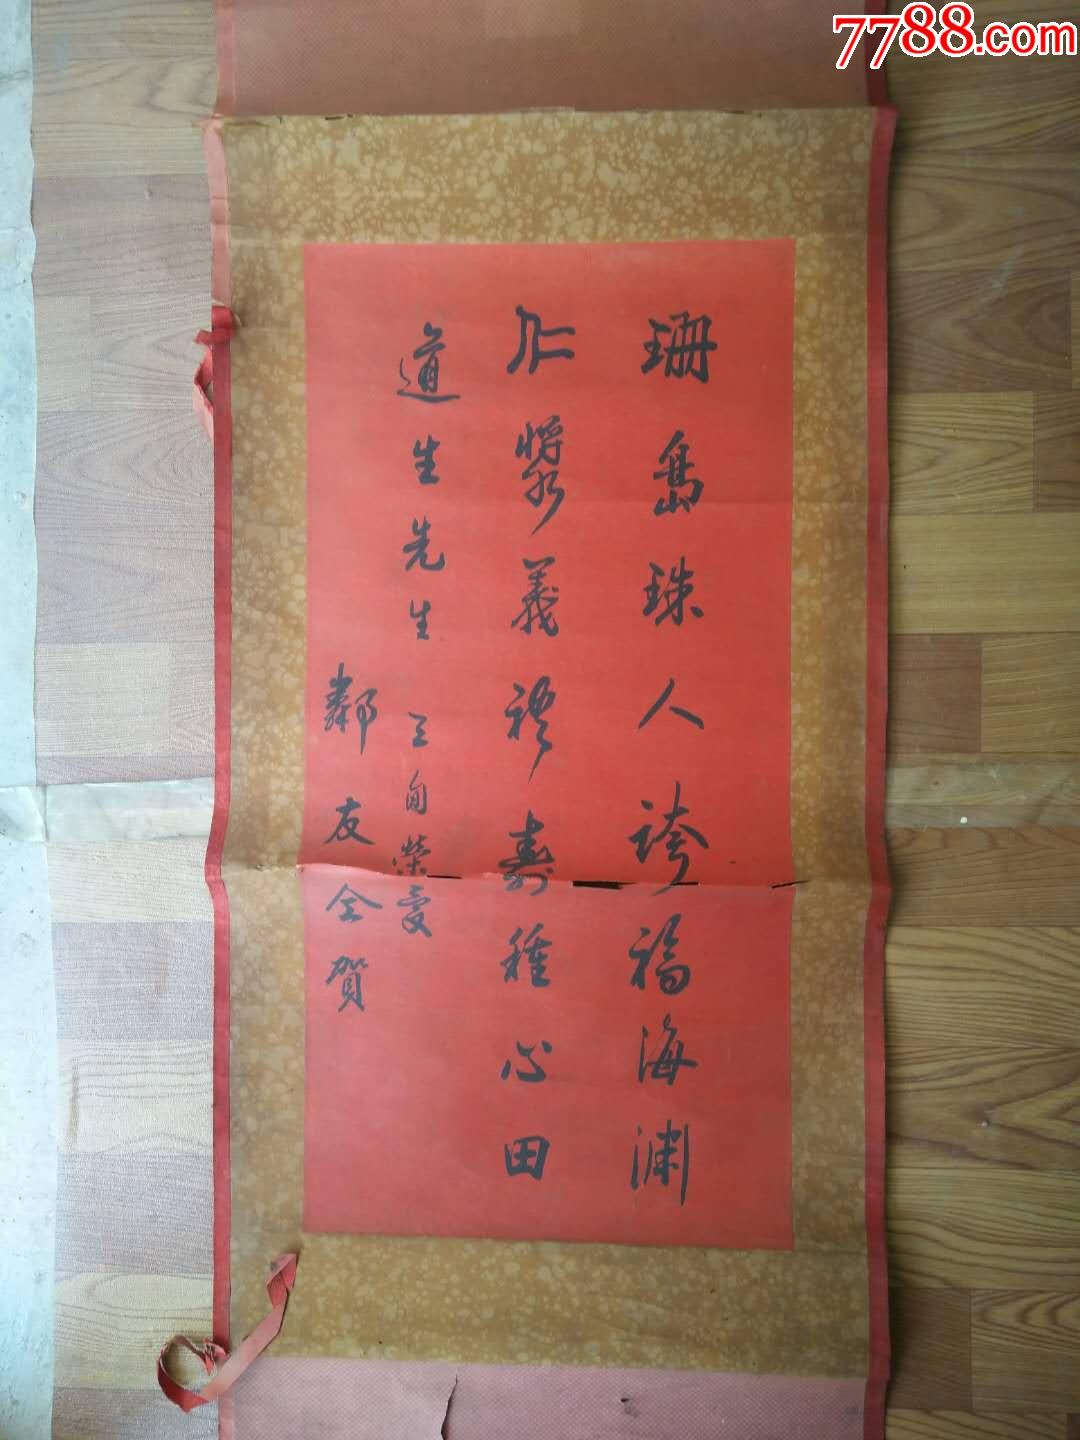 7788.com
珊島珠人誇福海渊
仁漿義禮壽種心田
道生先生 三旬榮慶
鄰友仝賀